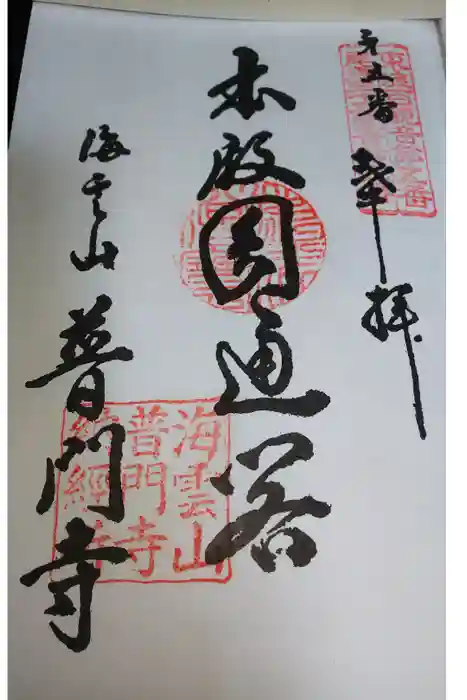 第五番
奉拝
本殿
圓通閣
海雲山
普門寺
海雲山
普門寺